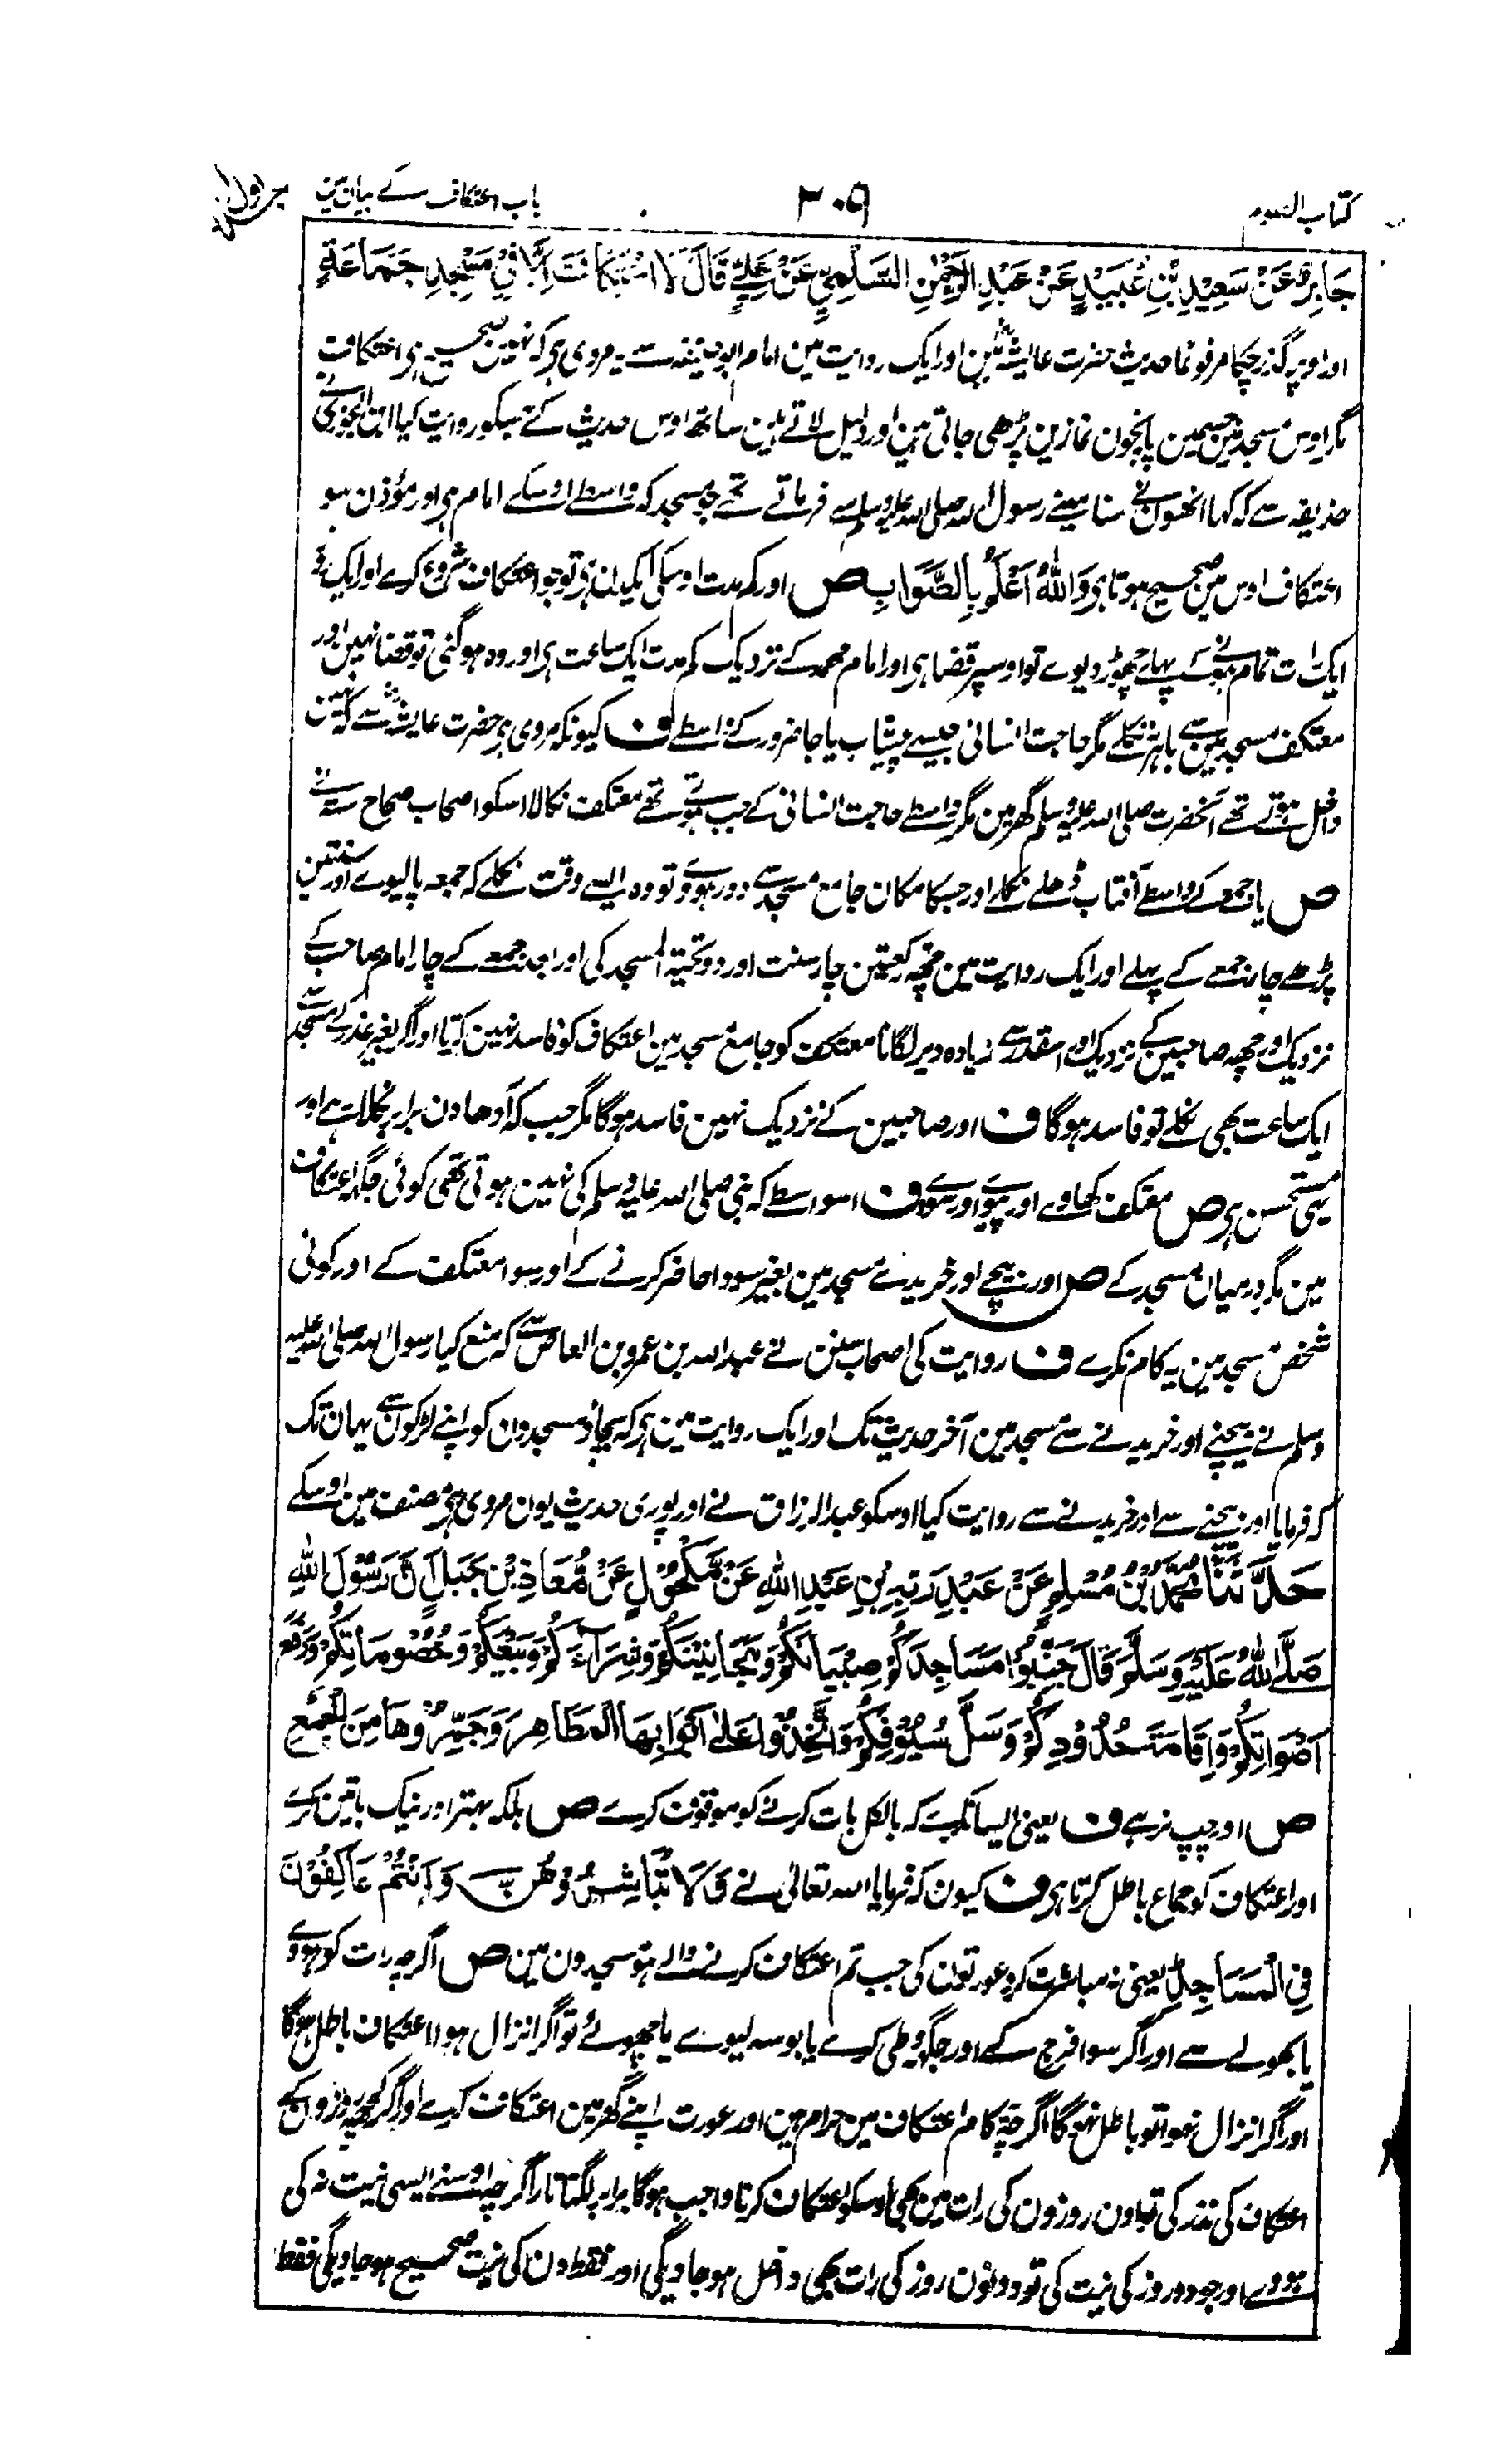 کتاب الصوم ۳۰۹ باب اعتکاف کے بیان مین جلد اول
جَابِرٍ عَنْ سَعِيْدِ بْنِ عُبَيْدٍ عَنْ عَبْدِ الرَّحْمٰنِ السُّلَمِيِّ عَنْ عَلِيٍّ قَالَ لَا اعْتِكَافَ اِلَّا فِيْ مَسْجِدِ جَمَاعَةٍ
اور اوپر گذر چکا مرفوعًا حدیث حضرت عایشہؓ مین اور ایک روایت مین امام ابو حنیفہ سے یہ مروی ہی کہ نہین صحیح ہی اعتکاف
مگر اوس مسجد مین جسمین پانچون نمازین پڑھی جاتی ہین اور دلیل لاتے ہین ساتھ اوس حدیث کے جسکو روایت کیا ابن الجوزی نے
حذیفہ سے کہ کہا انھون نے سنا مینے رسول اللہ صلی اللہ علیہ وسلم سے فرماتے تھے جو مسجد کہ واسطے اوسکے امام ہی اور مؤذن ہو
اعتکاف اوس مین صحیح ہوتا ہی وَاللهُ اَعْلَمُ بِالصَّوَابِ ص اور کم مدت اوسکی ایکدن ہی تو جو اعتکاف شروع کرے اور ایک روز
ایک رات تمام ہونے کے پہلے چھوڑ دیوے تو اوسپر قضا ہی اور امام محمد کے نزدیک کم مدت ایک ساعت ہی اور وہ ہو گئی تو قضا نہین اور
معتکف مسجد مین سے باہر نہ نکلے مگر حاجت انسانی جیسے پیشاب یا جا ضرور کے واسطے ف کیونکہ مروی ہی حضرت عایشہؓ سے کہ نہین
داخل ہوتے تھے آنحضرت صلی اللہ علیہ وسلم گھر مین مگر واسطے حاجت انسانی کے جب ہوتے تھے معتکف نکالا اسکو اصحاب صحاح ستہ نے
ص یا جمعے کے واسطے آفتاب ڈھلے نکلے اور جسکا مکان جامع مسجد سے دور ہووے تو وہ ایسے وقت نکلے کہ جمعہ پا لیوے اور سنتین
پڑھے چار جمعے کے پہلے اور ایک روایت مین چھہ رکعتین چار سنت اور دو تحیۃ المسجد کی اور بعد جمعے کے چار امام صاحب کے
نزدیک اور چھہ صاحبین کے نزدیک اور اسقدر سے زیادہ دیر لگانا معتکف کو جامع مسجد مین اعتکاف کو فاسد نہین کرتا اور اگر بغیر عذر کے مسجد سے
ایک ساعت بھی نکلے تو فاسد ہوگا ف اور صاحبین کے نزدیک نہین فاسد ہوگا مگر جب کہ آدھا دن برابر نکلا رہے اور
یہی مستحسن ہی ص معتکف کھاوے اور پیوے اور سووے ف اسواسطے کہ نبی صلی اللہ علیہ وسلم کی نہین ہوتی تھی کوئی جگہ اعتکاف
مین مگر درمیان مسجد کے ص اور بیچے اور خریدے مسجد مین بغیر سودا حاضر کرنے کے اور سوا معتکف کے اور کوئی
شخص مسجد مین یہ کام نکرے ف روایت کی اصحاب سنن نے عبد اللہ بن عمرو بن العاص سے کہ منع کیا رسول اللہ صلی اللہ علیہ
وسلم نے بیچنے اور خریدنے سے مسجد مین آخر حدیث تک اور ایک روایت مین ہی کہ بچاؤ مسجدون کو اپنے لڑکون سے یہان تک
کہ فرمایا اور بیچنے سے اور خریدنے سے روایت کیا اوسکو عبد الرزاق نے اور پوری حدیث یون مروی ہی مصنف مین اوسکے
حَدَّثَنَا مُحَمَّدُ بْنُ مُسْلِمٍ عَنْ عَبْدِ رَبِّهِ بْنِ عَبْدِ اللهِ عَنْ مَكْحُوْلٍ عَنْ مُعَاذِ بْنِ جَبَلٍ اَنَّ رَسُوْلَ اللهِ
صَلَّى اللهُ عَلَيْهِ وَسَلَّمَ قَالَ جَنِّبُوْا مَسَاجِدَكُمْ صِبْيَانَكُمْ وَمَجَانِيْنَكُمْ وَشِرَآءَكُمْ وَبَيْعَكُمْ وَخُصُوْمَاتِكُمْ وَرَفْعَ
اَصْوَاتِكُمْ وَاِقَامَتَ حُدُوْدِكُمْ وَسَلَّ سُيُوْفِكُمْ وَاتَّخِذُوْا عَلٰى اَبْوَابِهَا الْمَطَاهِرَ وَجَمِّرُوْهَا مِنَ الْجُمَعِ
ص اور چپ نرہے ف یعنی ایسا نکرے کہ بالکل بات کرنے کو موقوف کرے ص بلکہ بہتر اور نیک باتین کرے
اور اعتکاف کو جماع باطل کرتا ہی ف کیون کہ فرمایا اللہ تعالیٰ نے وَلَا تُبَاشِرُوْهُنَّ وَاَنْتُمْ عَاكِفُوْنَ
فِي الْمَسَاجِدِ یعنی نہ مباشرت کرو عورتون کی جب تم اعتکاف کرنے والے ہو مسجدون مین ص اگرچہ رات کو ہووے
یا بھولے سے اور اگر سوا فرج کے اور جگہ وطی کرے یا بوسہ لیوے یا چھوئے تو اگر انزال ہوا اعتکاف باطل ہوگا
اور اگر انزال نہوا تو باطل نہوگا اگرچہ یہ کام اعتکاف مین حرام ہین اور عورت اپنے گھر مین اعتکاف کرے اور اگر کچھ روزون کے
اعتکاف کی نذر کی تو اون روزون کی رات مین بھی اوسکو اعتکاف کرنا واجب ہوگا برابر لگتا تار اگرچہ اوسنے ایسی نیت نہ کی
ہووے اور جو دو روز کی نیت کی تو دونون روز کی رات بھی داخل ہو جاویگی اور فقط دن کی نیت صحیح ہو جاویگی فقط